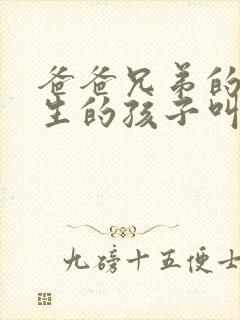 爸爸兄弟的
生的孩子叫
九磅十五便士